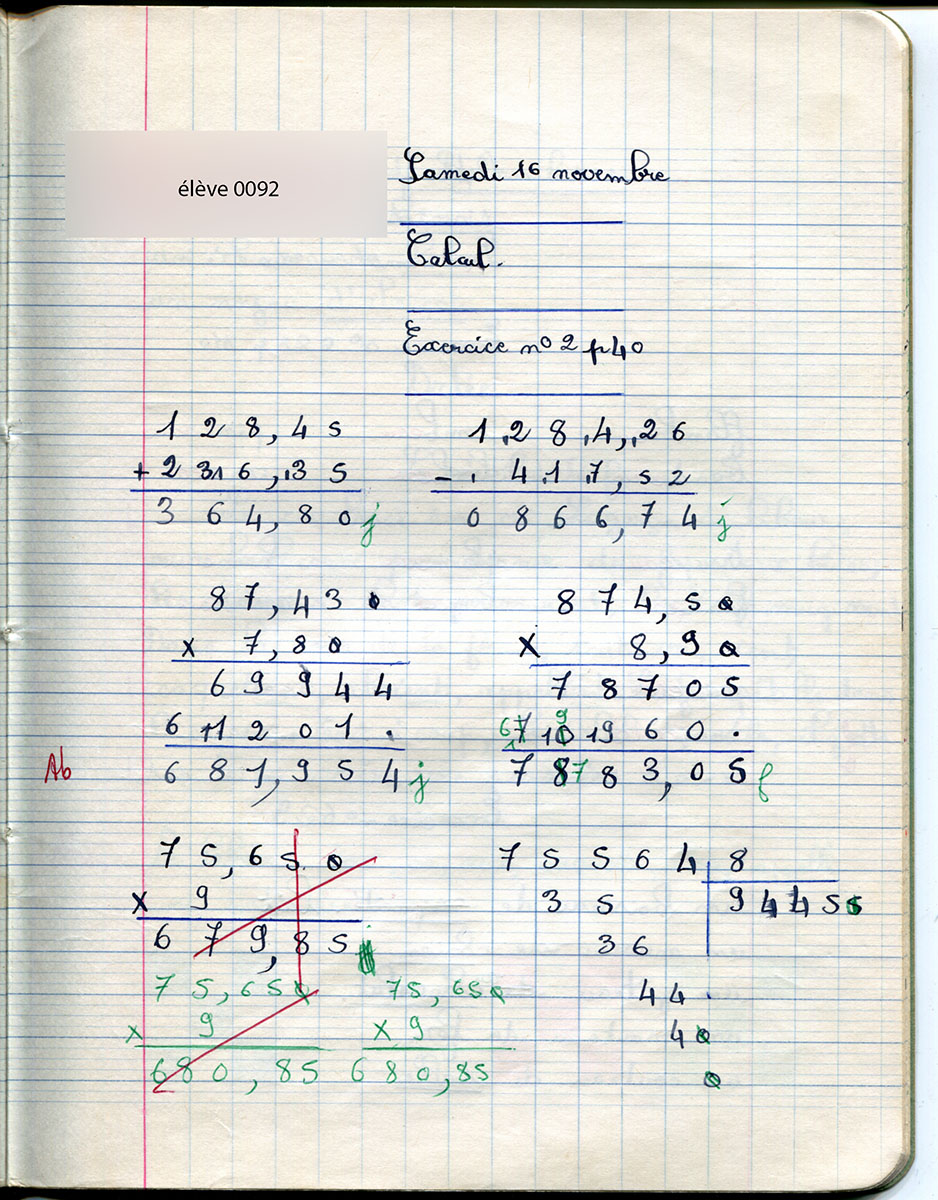 élève 0092
Samedi 16 novembre
Calcul.
Exercice nº 2 p 40
128,45
+ 236,35
364,80 j
1284,26
- 417,52
0866,74 j
87,430
x 7,80
69944
611201.
681,954 j
874,50
x 8,90
78705
69960.
7783,05 f
Ab
75,650
x 9
679,85
75,650
x 9
680,85
75,650
x 9
680,85
75564 8
35 94455
36
44
40
0